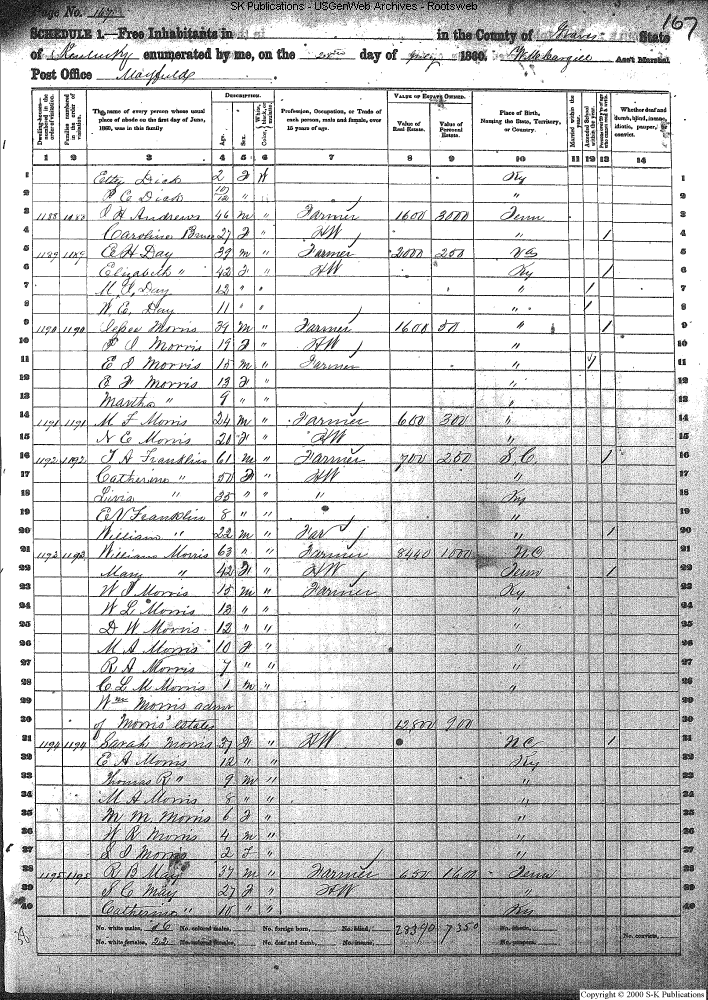 SK Publications - USGenWeb Archives - Rootsweb
Page No. 167
167
SCHEDULE 1.—Free Inhabitants in in the County of Graves State
of Kentucky enumerated by me, on the day of July 1860. Ass't Marshal
Post Office Mayfield
Dwelling-houses—numbered in the order of visitation.
Families numbered in the order of visitation.
The name of every person whose usual place of abode on the first day of June, 1860, was in this family
DESCRIPTION.
Age.
Sex.
Color,
Profession, Occupation, or Trade of each person, male and female, over 15 years of age.
VALUE OF ESTATE OWNED.
Value of Real Estate.
Value of Personal Estate.
Place of Birth, Naming the State, Territory, or Country.
Married within the year.
Attended School within the year.
Whether deaf and dumb, blind, insane, idiotic, pauper, or convict.
1 2 3 4 5 6 7 8 9 10 11 12 13 14
1 Etty Dick 2 F W Ky 1
2 Dick 10/12 " " 2
3 1188 1188 Andrews 46 m " Farmer 1600 3000 Tenn 3
4 Caroline 27 F " HW " / 4
5 1189 1189 E H Day 39 m " Farmer 2000 250 Va 5
6 Elizabeth " 42 F " HW Ky / 6
7 Day 12 " " " / 7
8 W. E. Day 11 " " " / 8
9 1190 1190 Morris 39 m " Farmer 1600 50 " / 9
10 Morris 19 F " HW " 10
11 Morris 15 m " Farmer " 11
12 Morris 13 F " " 12
13 Martha " 9 " " " 13
14 1191 1191 M F Morris 24 m " Farmer 600 300 " 14
15 N E Morris 20 F " HW " 15
16 1192 1192 Franklin 61 m " Farmer 700 250 S. C. / 16
17 Catherine " 50 F " HW " 17
18 " 35 " " " Ky 18
19 Franklin 8 " " " 19
20 William " 22 m " Far " / 20
21 1193 1193 William Morris 63 " " Farmer 8440 1000 N C 21
22 Mary " 42 F " HW Tenn / 22
23 Morris 15 m " Farmer Ky 23
24 W L Morris 13 " " " 24
25 D W Morris 12 " " " 25
26 M A Morris 10 F " " 26
27 R A Morris 7 " " " 27
28 C L M Morris 1 m " " 28
29 Wm Morris admr 29
30 of Morris' estates 12800 900 30
31 1194 1194 Sarah Morris 37 F " HW N C / 31
32 E A Morris 12 " " Ky 32
33 Thomas R " 9 m " " 33
34 M A Morris 8 " " " 34
35 M M. Morris 6 F " 35
36 W R Morris 4 m " " 36
37 Morris 2 F " " 37
38 1195 1195 R B May 37 m " Farmer 650 1600 Tenn 38
39 S C May 27 F " HW " 39
40 Catherine " 10 " " Ky 40
No. white males, 16 No. colored males, No. foreign born, No. blind, 28390 7350 No. convicts,
No. white females, 22 No. colored females, No. deaf and dumb, No. insane, No. paupers,
Copyright © 2000 S-K Publications